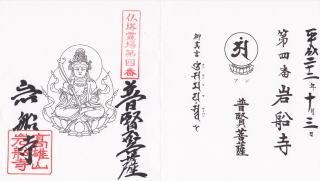 平成二十一年十月三日
第四番 岩船寺
アン
普賢菩薩
御真言
仏塔霊場第四番
普賢菩薩
岩船寺
高雄山
岩船寺